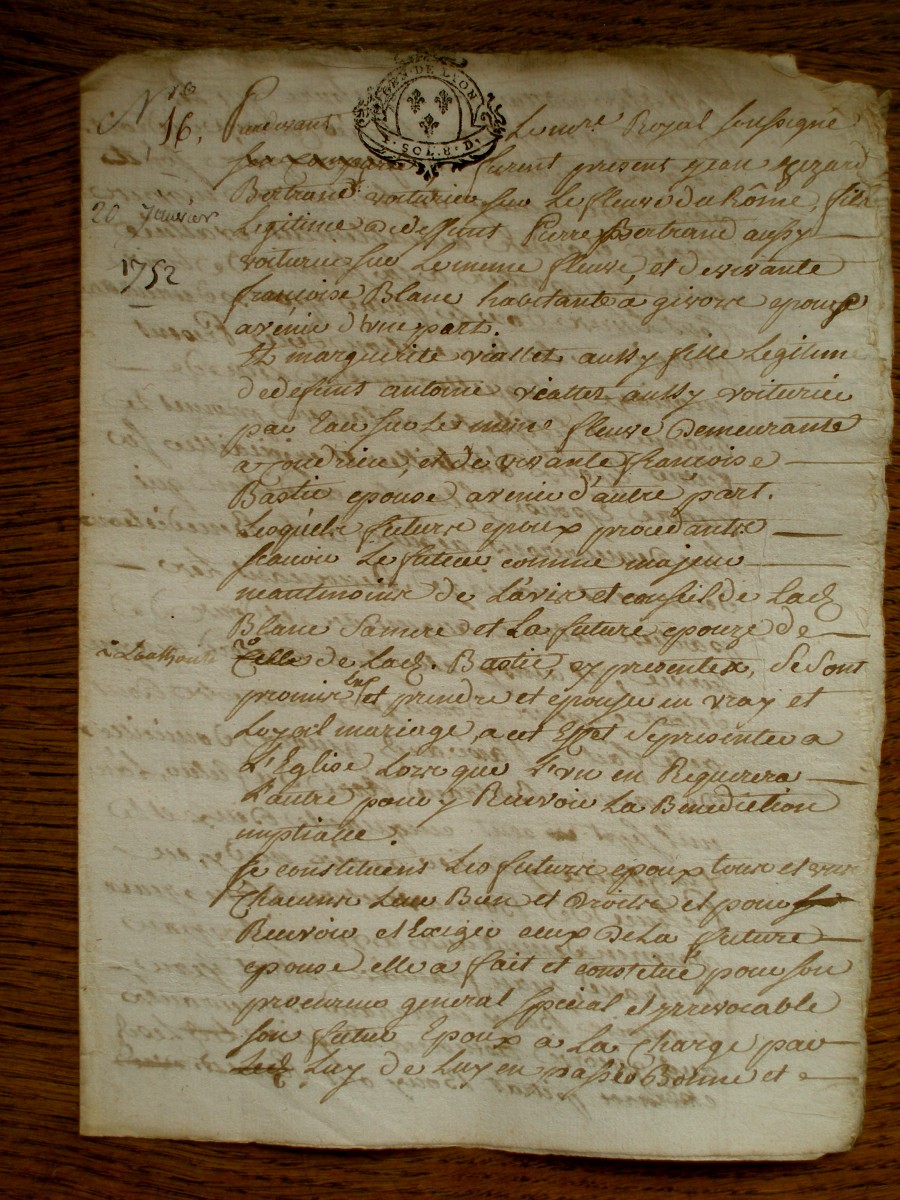 N.ro
16.
GEN. DE LYON
4. SOL. 8. D.
Pardevant Le no.re Royal soussigné
furent présent jean
20 Janvier
Bertrand voiturier sur Le fleuve du Rône, fils
Legitime de deffunt Pierre Bertrand aussy
1752
voiturier sur Le meme fleuve, et de vivante
françoise Blanc habitante a givors epoux
avenir d'une part.
Et marguerite viallet aussy fille Legitime
de defunt antoine viallet aussy voiturier
par Eau sur Le meme fleuve Demeurante
a Condrieu, et de vivante françoise
Bastie epouse avenir d'autre part.
Lesquels futurs epoux procedants
scavoir Le futur comme majeur
neantmoins de L'avis et conseil de Lad.
Blanc sa mere et La future epouze de
celle de Lad. Bastie cy presentes, se sont
promis et prendre et epouser en vray et
Loyal mariage, a cet Effet se presenter a
L'Eglise Lorsque L'un en Requerera
L'autre pour y Recevoir La Benediction
nuptialle.
Se constituent Les futurs epoux tous et uns
Chacuns Leur Bien et Droits et pour
Recevoir et Exiger ceux de La future
epouse elle a fait et constitué pour son
procureur general special et irrevocable
son futur Epoux a La Charge par
Luy de Luy en passer Bonne et